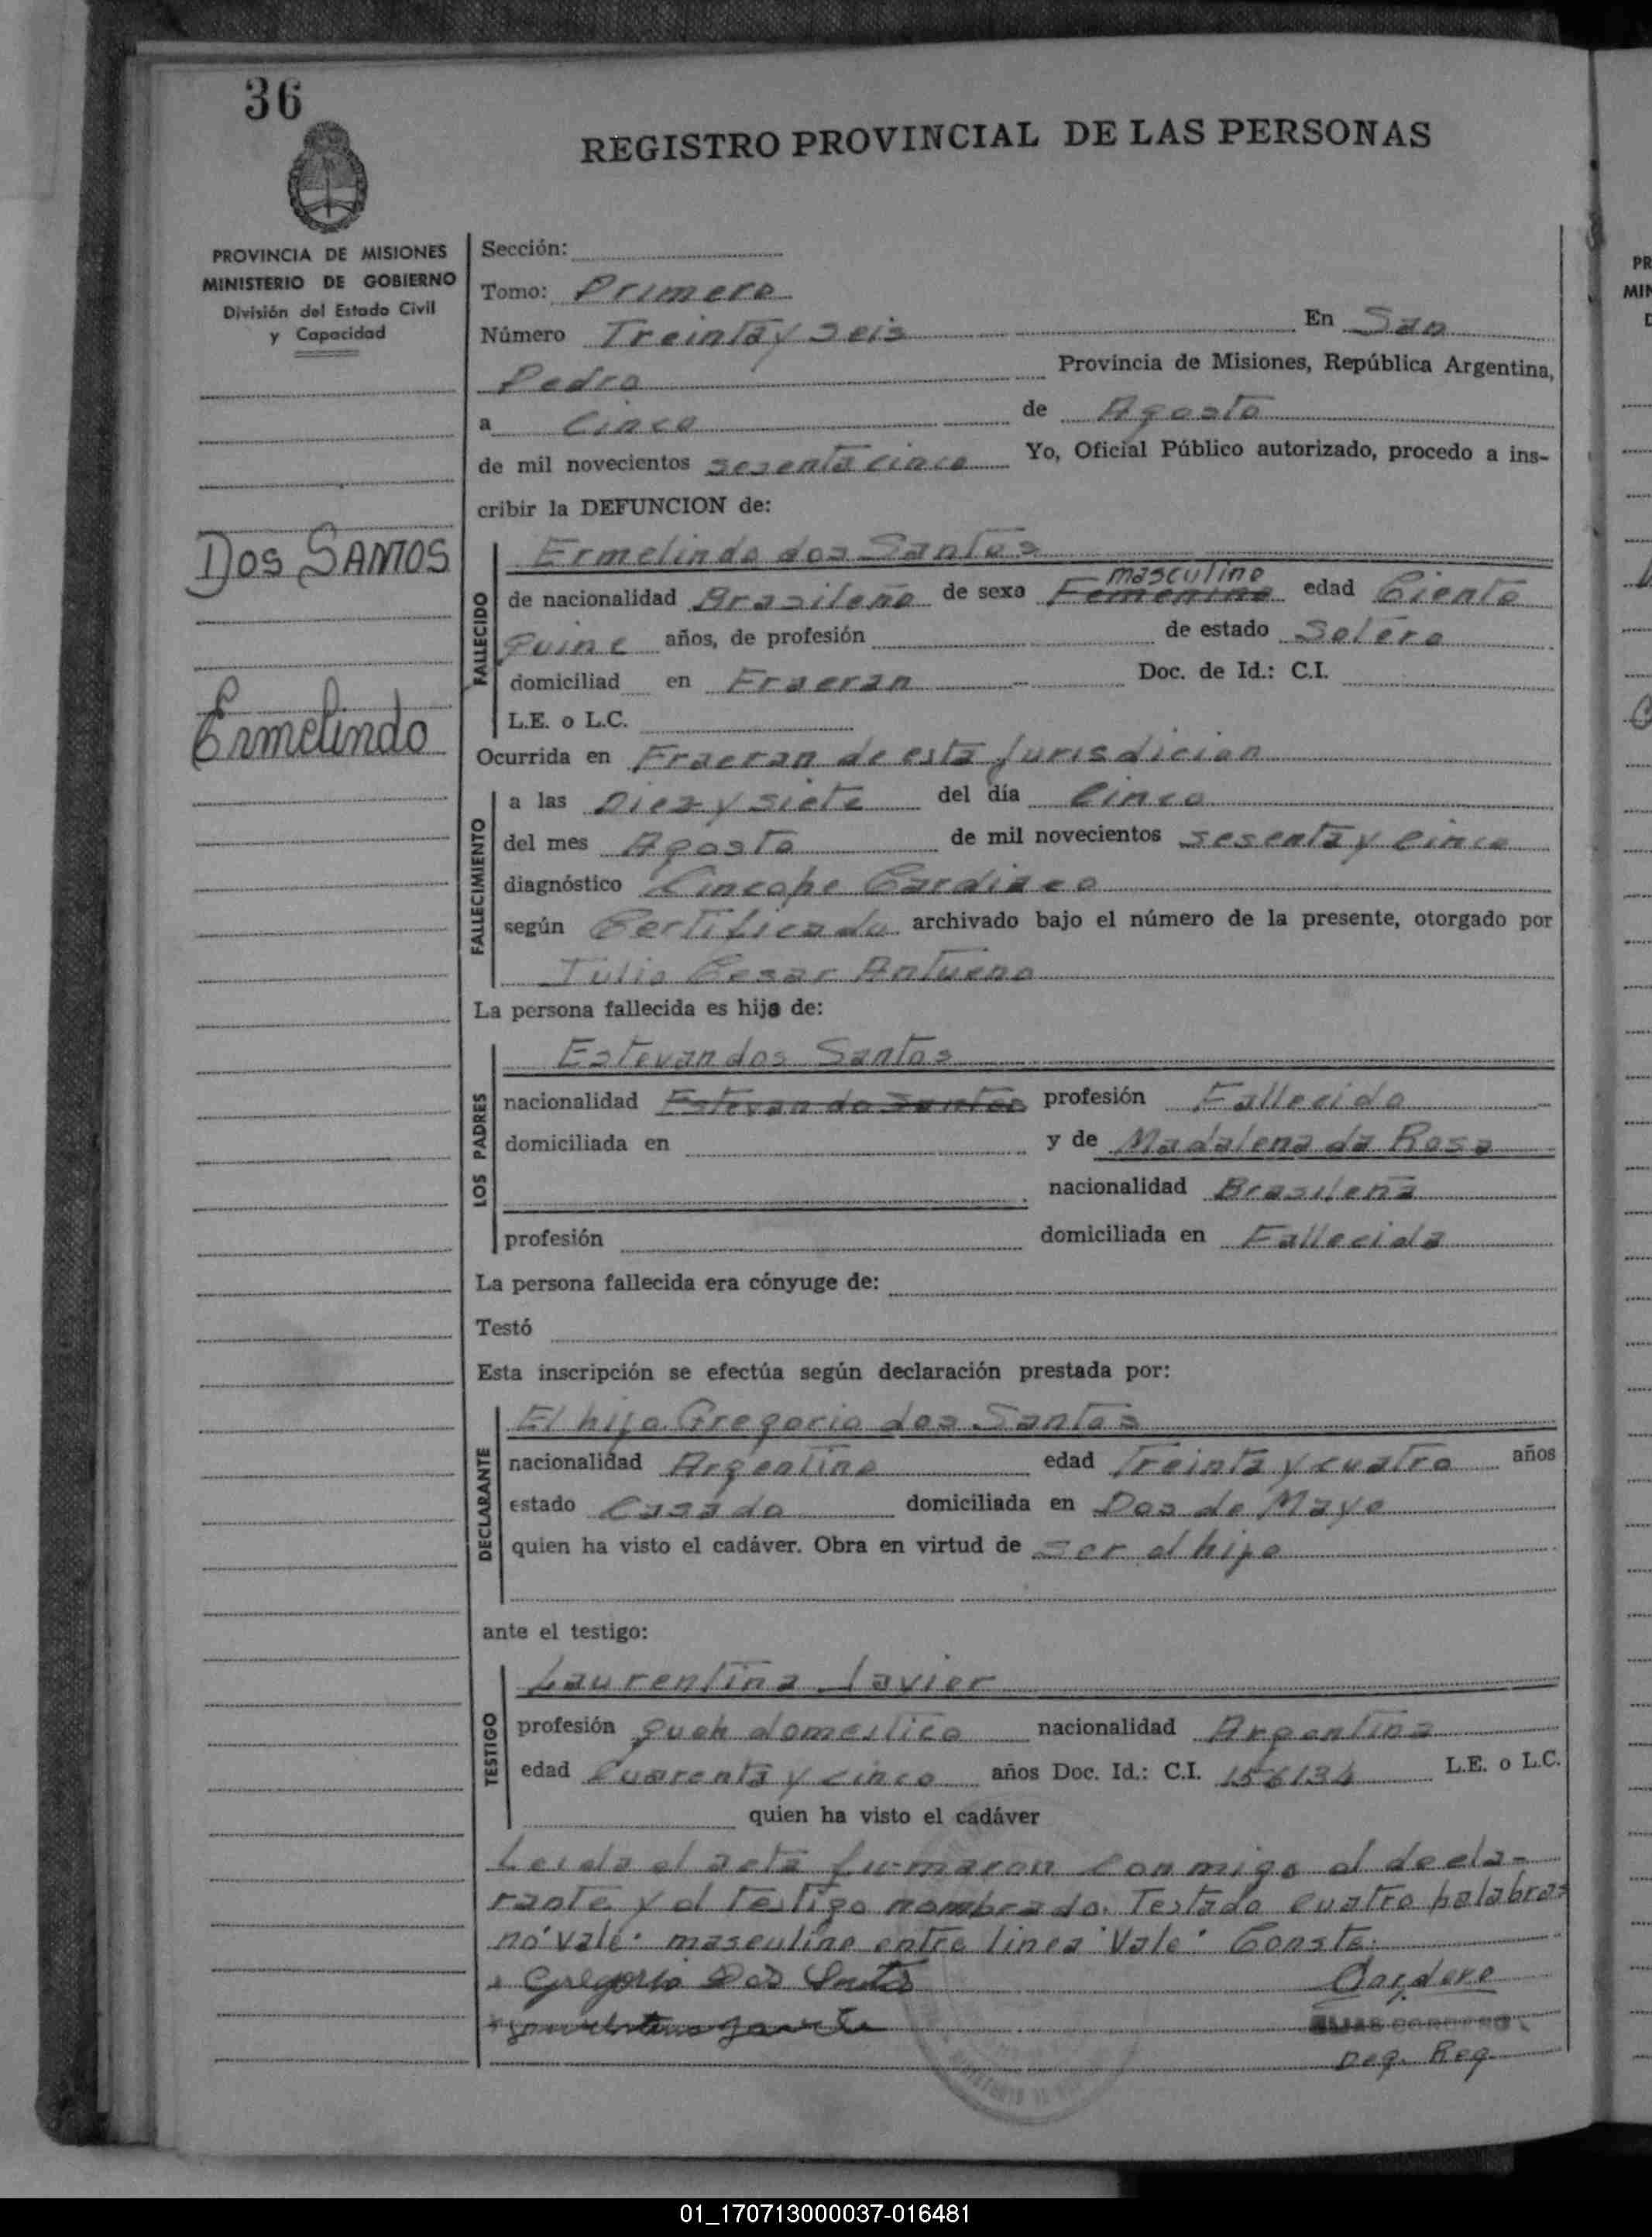 36
REGISTRO PROVINCIAL DE LAS PERSONAS
PROVINCIA DE MISIONES
MINISTERIO DE GOBIERNO
División del Estado Civil
y Capacidad
Dos SANTOS
Ermelindo
Sección:
Tomo: Primero
Número Treinta y seis En San
Pedro Provincia de Misiones, República Argentina,
a Cinco de Agosto
de mil novecientos sesenta cinco Yo, Oficial Público autorizado, procedo a ins-
cribir la DEFUNCION de:
FALLECIDO
Ermelindo dos Santos
masculino
de nacionalidad Brasileño de sexo Femenino edad Ciento
Quinc años, de profesión de estado Soltero
domiciliad en Fracran Doc. de Id.: C.I.
L.E. o L.C.
Ocurrida en Fracran de esta Jurisdicion
FALLECIMIENTO
a las Diez y siete del día Cinco
del mes Agosto de mil novecientos sesenta y Cinco
diagnóstico Cincope Cardiaco
según Certificado archivado bajo el número de la presente, otorgado por
Julio Cesar Antueno
La persona fallecida es hijo de:
LOS PADRES
Estevan dos Santos
nacionalidad Estevan do Santos profesión Fallecido
domiciliada en y de Madalena da Rosa
nacionalidad Brasileña
profesión domiciliada en Fallecida
La persona fallecida era cónyuge de:
Testó
Esta inscripción se efectúa según declaración prestada por:
DECLARANTE
El hijo Gregorio dos Santos
nacionalidad Argentino edad Treinta y cuatro años
estado Casado domiciliada en Dos de Mayo
quien ha visto el cadáver. Obra en virtud de ser el hijo
ante el testigo:
TESTIGO
Laurentina Javier
profesión queh domestico nacionalidad Argentina
edad Cuarenta y cinco años Doc. Id.: C.I. 156134 L.E. o L.C.
quien ha visto el cadáver
Leida el acta firmaron conmigo el decla-
rante y el testigo nombrado. Testado cuatro palabras
no "vale" masculino entre linea "Vale" Conste.
Gregorio Dos Santos Cordero
ELIAS CORDERO
Deg. Reg.
PR
MIN
01_170713000037-016481